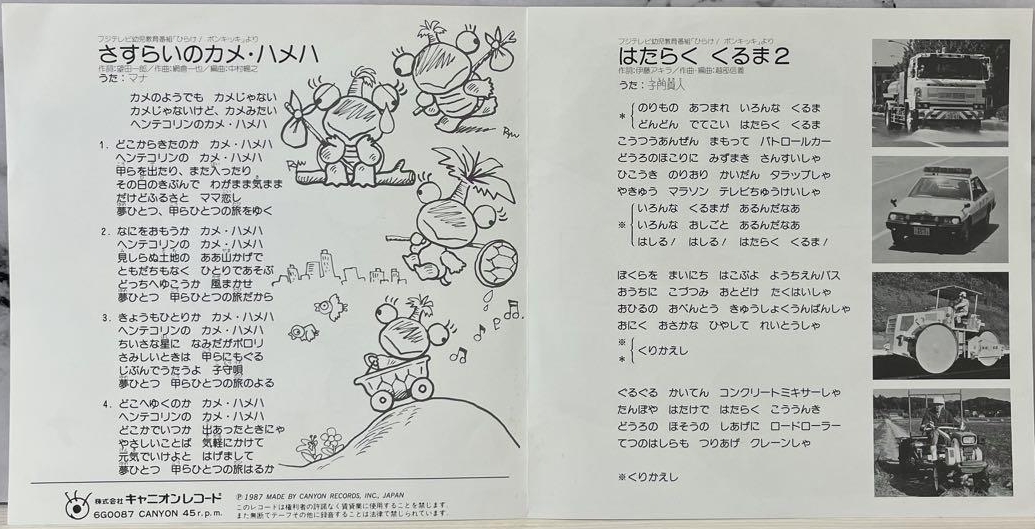 フジテレビ幼児教育番組「ひらけ! ポンキッキ」より
さすらいのカメ・ハメハ
作詞:望田一郎/作曲:網倉一也/編曲:中村暢之
うた:マナ
カメのようでも カメじゃない
カメじゃないけど、カメみたい
ヘンテコリンのカメ・ハメハ
1. どこからきたのか カメ・ハメハ
ヘンテコリンの カメ・ハメハ
甲らを出たり、また入ったり
その日のきぶんで わがまま気まま
だけどふるさと ママ恋し
夢ひとつ、甲らひとつの旅をゆく
2. なにをおもうか カメ・ハメハ
ヘンテコリンの カメ・ハメハ
見しらぬ土地の ああ山かげで
ともだちもなく ひとりであそぶ
どっちへゆこうか 風まかせ
夢ひとつ 甲らひとつの旅だから
3. きょうもひとりか カメ・ハメハ
ヘンテコリンの カメ・ハメハ
ちいさな星に なみだがポロリ
さみしいときは 甲らにもぐる
じぶんでうたうよ 子守唄
夢ひとつ 甲らひとつの旅のよる
4. どこへゆくのか カメ・ハメハ
ヘンテコリンの カメ・ハメハ
どこかでいつか 出あったときにゃ
やさしいことば 気軽にかけて
元気でいけよと はげまして
夢ひとつ 甲らひとつの旅はるか
株式会社 キャニオンレコード
6G0087 CANYON 45r.p.m.
Ⓟ1987 MADE BY CANYON RECORDS, INC., JAPAN
このレコードは権利者の許諾なく賃貸業に使用することを禁じます。
また無断でテープその他に録音することは法律で禁じられています。
フジテレビ幼児教育番組「ひらけ! ポンキッキ」より
はたらく くるま2
作詞:伊藤アキラ/作曲・編曲:越部信義
うた:子門真人
* のりもの あつまれ いろんな くるま
どんどん でてこい はたらく くるま
こうつうあんぜん まもって パトロールカー
どうろのほこりに みずまき さんすいしゃ
ひこうき のりおり かいだん タラップしゃ
やきゅう マラソン テレビちゅうけいしゃ
※ いろんな くるまが あるんだなあ
いろんな おしごと あるんだなあ
はしる! はしる! はたらく くるま!
ぼくらを まいにち はこぶよ ようちえんバス
おうちに こづつみ おとどけ たくはいしゃ
おひるの おべんとう きゅうしょくうんぱんしゃ
おにく おさかな ひやして れいとうしゃ
※
* くりかえし
ぐるぐる かいてん コンクリートミキサーしゃ
たんぼや はたけで はたらく こううんき
どうろの ほそうの しあげに ロードローラー
てつのはしらも つりあげ クレーンしゃ
※くりかえし